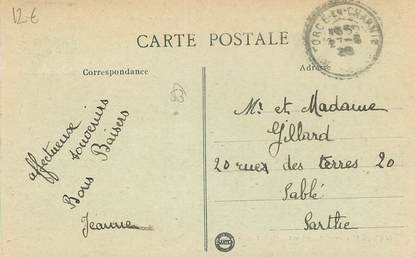 12€
CARTE POSTALE
Correspondance
Adresse
TORCÉ-EN-CHARNIE
affectueux
souvenirs
Bons Baisers
Jeanne
Mr et Madame
Gillard
20 rues des terres 20
Sablé
Sarthe